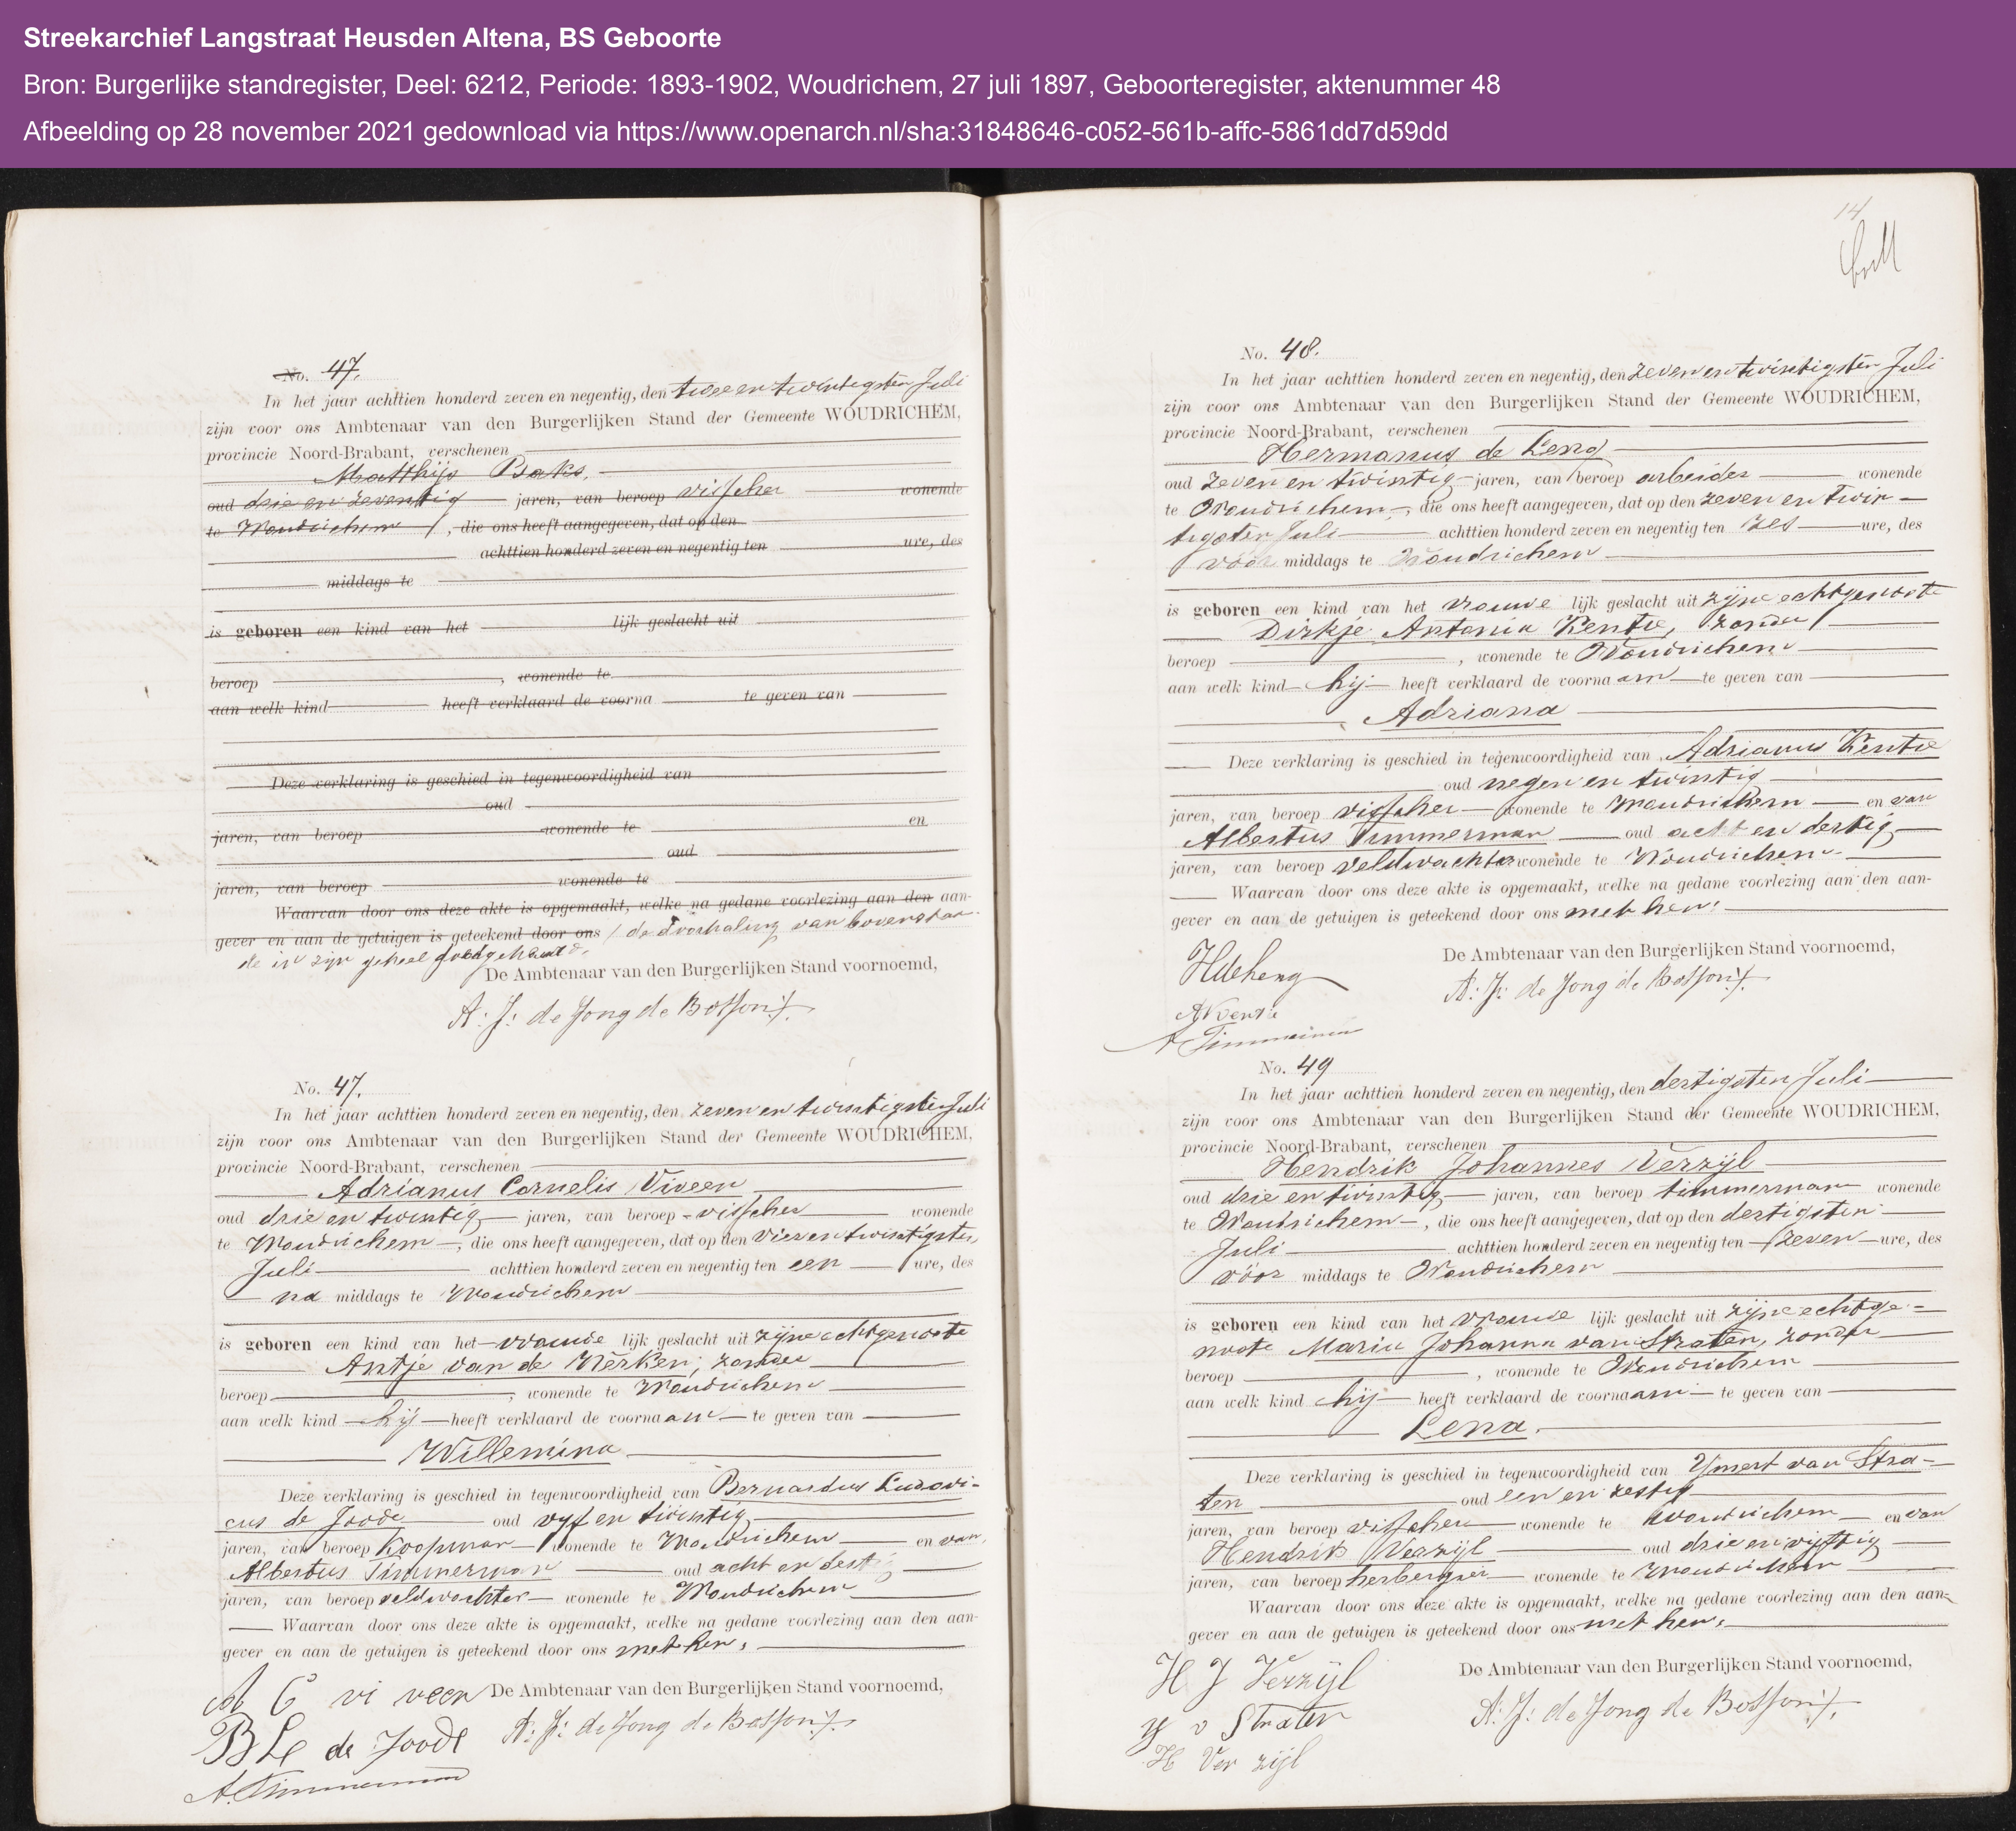 Streekarchief Langstraat Heusden Altena, BS Geboorte
Bron: Burgerlijke standregister, Deel: 6212, Periode: 1893-1902, Woudrichem, 27 juli 1897, Geboorteregister, aktenummer 48
Afbeelding op 28 november 2021 gedownload via https://www.openarch.nl/sha:31848646-c052-561b-affc-5861dd7d59dd
No. 47.
In het jaar achttien honderd zeven en negentig, den twee en twintigsten Juli
zijn voor ons Ambtenaar van den Burgerlijken Stand der Gemeente WOUDRICHEM,
provincie Noord-Brabant, verschenen
Matthijs Baks,
oud drie en zeventig jaren, van beroep visscher wonende
te Woudrichem, die ons heeft aangegeven, dat op den
achttien honderd zeven en negentig ten ure, des
middags te
is geboren een kind van het lijk geslacht uit
beroep , wonende te
aan welk kind heeft verklaard de voorna te geven van
Deze verklaring is geschied in tegenwoordigheid van
oud
jaren, van beroep wonende te en
oud
jaren, van beroep wonende te
Waarvan door ons deze akte is opgemaakt, welke na gedane voorlezing aan den aan-
gever en aan de getuigen is geteekend door ons / de doorhaling van bovenstaan-
de in zijn geheel goedgekeurd.
De Ambtenaar van den Burgerlijken Stand voornoemd,
A: J: de Jong de Bosson
No. 47.
In het jaar achttien honderd zeven en negentig, den zeven en twintigsten Juli
zijn voor ons Ambtenaar van den Burgerlijken Stand der Gemeente WOUDRICHEM,
provincie Noord-Brabant, verschenen
Adrianus Cornelis Viveen
oud drie en twintig jaren, van beroep visscher wonende
te Woudrichem, die ons heeft aangegeven, dat op den vier en twintigsten
Juli achttien honderd zeven en negentig ten een ure, des
na middags te Woudrichem
is geboren een kind van het vrouwe lijk geslacht uit zijne echtgenoote
Antje van de Werken, zonder
beroep , wonende te Woudrichem
aan welk kind hij heeft verklaard de voornaam te geven van
Willemina
Deze verklaring is geschied in tegenwoordigheid van Bernardus Ludovi-
cus de Joode oud vyf en twintig
jaren, van beroep Koopman wonende te Woudrichem en van
Albertus Timmerman oud acht en dertig
jaren, van beroep veldwachter wonende te Woudrichem
Waarvan door ons deze akte is opgemaakt, welke na gedane voorlezing aan den aan-
gever en aan de getuigen is geteekend door ons met hen.
A C vi veen De Ambtenaar van den Burgerlijken Stand voornoemd,
B L de Joode A: J: de Jong de Bosson
A. Timmerman
14
No. 48.
In het jaar achttien honderd zeven en negentig, den zeven en twintigsten Juli
zijn voor ons Ambtenaar van den Burgerlijken Stand der Gemeente WOUDRICHEM,
provincie Noord-Brabant, verschenen
Hermanus de Heng
oud zeven en twintig jaren, van beroep arbeider wonende
te Woudrichem, die ons heeft aangegeven, dat op den zeven en twin-
tigsten Juli achttien honderd zeven en negentig ten zes ure, des
vóór middags te Woudrichem
is geboren een kind van het vrouwe lijk geslacht uit zijne echtgenoote
Dirkje Antonia Kentie, zonder
beroep , wonende te Woudrichem
aan welk kind hij heeft verklaard de voornaam te geven van
Adriana
Deze verklaring is geschied in tegenwoordigheid van Adrianus Kentie
oud negen en twintig
jaren, van beroep visscher wonende te Woudrichem en van
Albertus Timmerman oud acht en dertig
jaren, van beroep veldwachter wonende te Woudrichem
Waarvan door ons deze akte is opgemaakt, welke na gedane voorlezing aan den aan-
gever en aan de getuigen is geteekend door ons met hen.
HdeHeng De Ambtenaar van den Burgerlijken Stand voornoemd,
A: J: de Jong de Bosson
A Kentie
A Timmerman
No. 49
In het jaar achttien honderd zeven en negentig, den dertigsten Juli
zijn voor ons Ambtenaar van den Burgerlijken Stand der Gemeente WOUDRICHEM,
provincie Noord-Brabant, verschenen
Hendrik Johannes Verzijl
oud drie en twintig jaren, van beroep timmerman wonende
te Woudrichem, die ons heeft aangegeven, dat op den dertigsten
Juli achttien honderd zeven en negentig ten zeven ure, des
vóór middags te Woudrichem
is geboren een kind van het vrouwe lijk geslacht uit zijne echtge-
noote Maria Johanna van Straten, zonder
beroep , wonende te Woudrichem
aan welk kind hij heeft verklaard de voornaam te geven van
Lena.
Deze verklaring is geschied in tegenwoordigheid van Ymert van Stra-
ten oud een en zestig
jaren, van beroep visscher wonende te Woudrichem en van
Hendrik Verzijl oud drie en vijftig
jaren, van beroep herbergier wonende te Woudrichem
Waarvan door ons deze akte is opgemaakt, welke na gedane voorlezing aan den aan-
gever en aan de getuigen is geteekend door ons met hen.
H J Verzijl De Ambtenaar van den Burgerlijken Stand voornoemd,
Y v Straten A: J: de Jong de Bosson
H Ver zijl